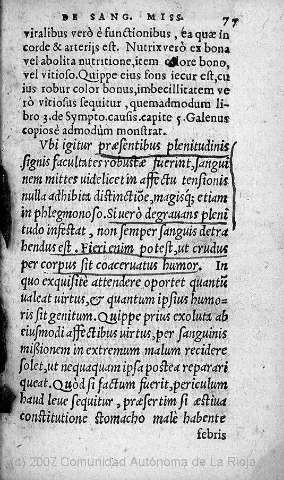 DE SANG. MISS. 77
vitalibus verò è functionibus, ea quæ in
corde & arterijs est. Nutrix verò ex bona
vel abolita nutritione, item colore bono,
vel vitioso. Quippe eius fons iecur est, cu
ius robur color bonus, imbecillitatem ve
rò vitiosus sequitur, quemadmodum li-
bro 3. de Sympto. causis. capite 5. Galenus
copiosè admodùm monstrat.
Vbi igitur præsentibus plenitudinis
signis facultates robustæ fuerint, sangui
nem mittes videlicet in affectu tensionis
nulla adhibita distinctiõe, magisq; etiam
in phlegmonoso. Si verò degrauans pleni
tudo infestat, non semper sanguis detra
hendus est. Fieri enim potest, ut crudus
per corpus sit coaceruatus humor. In
quo exquisitè attendere oportet quantũ
ualeat virtus, & quantum ipsius humo-
ris sit genitum. Quippe prius exoluta ab
eiusmodi affectibus virtus, per sanguinis
mißionem in extremum malum recidere
solet, ut nequaquam ipsa postea reparari
queat. Quòd si factum fuerit, periculum
haud leue sequitur, præsertim si æstiua
constitutione stomacho malè habente
febris
(c) 2007 Comunidad Autónoma de La Rioja